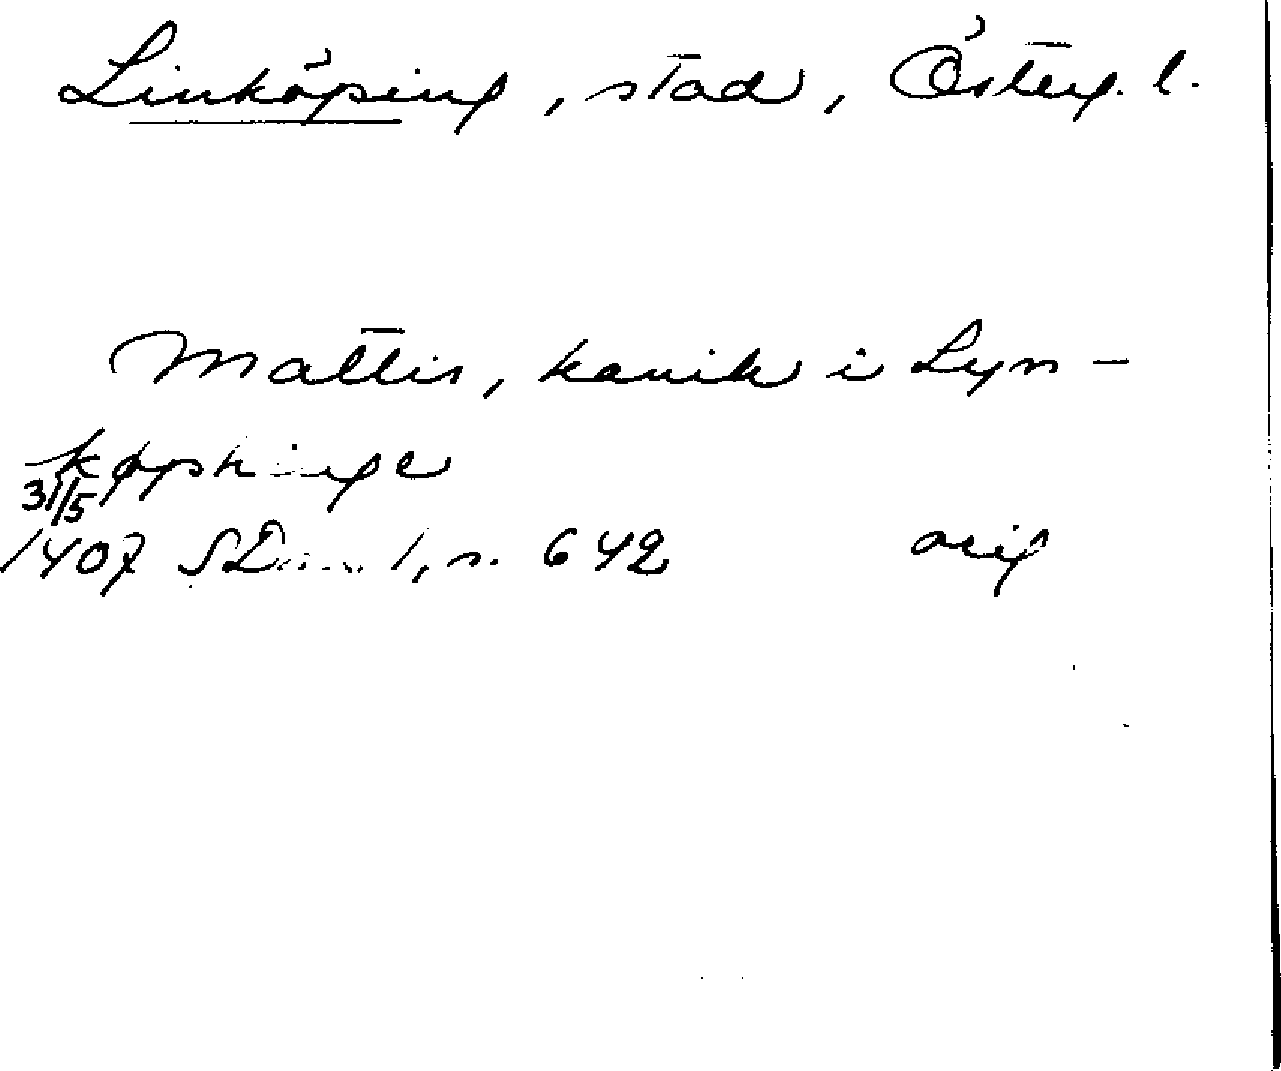 Linköping, stad, Österg. l.
Mattis, kanik i Lyn-
køpshinge
31/5
1407 SD 1, n. 642 orig